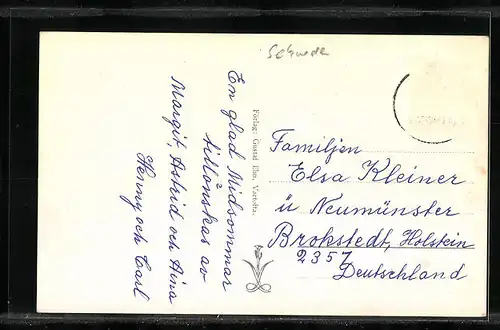 Schwede
En glad Midsommar
tillönskas av
Margit, Astrid och Aina
Henny och Carl
Förlag: Gustaf Elm, Vartofta.
Familjen
Elsa Kleiner
ü Neumünster
Brokstedt, Holstein
2357
Deutschland